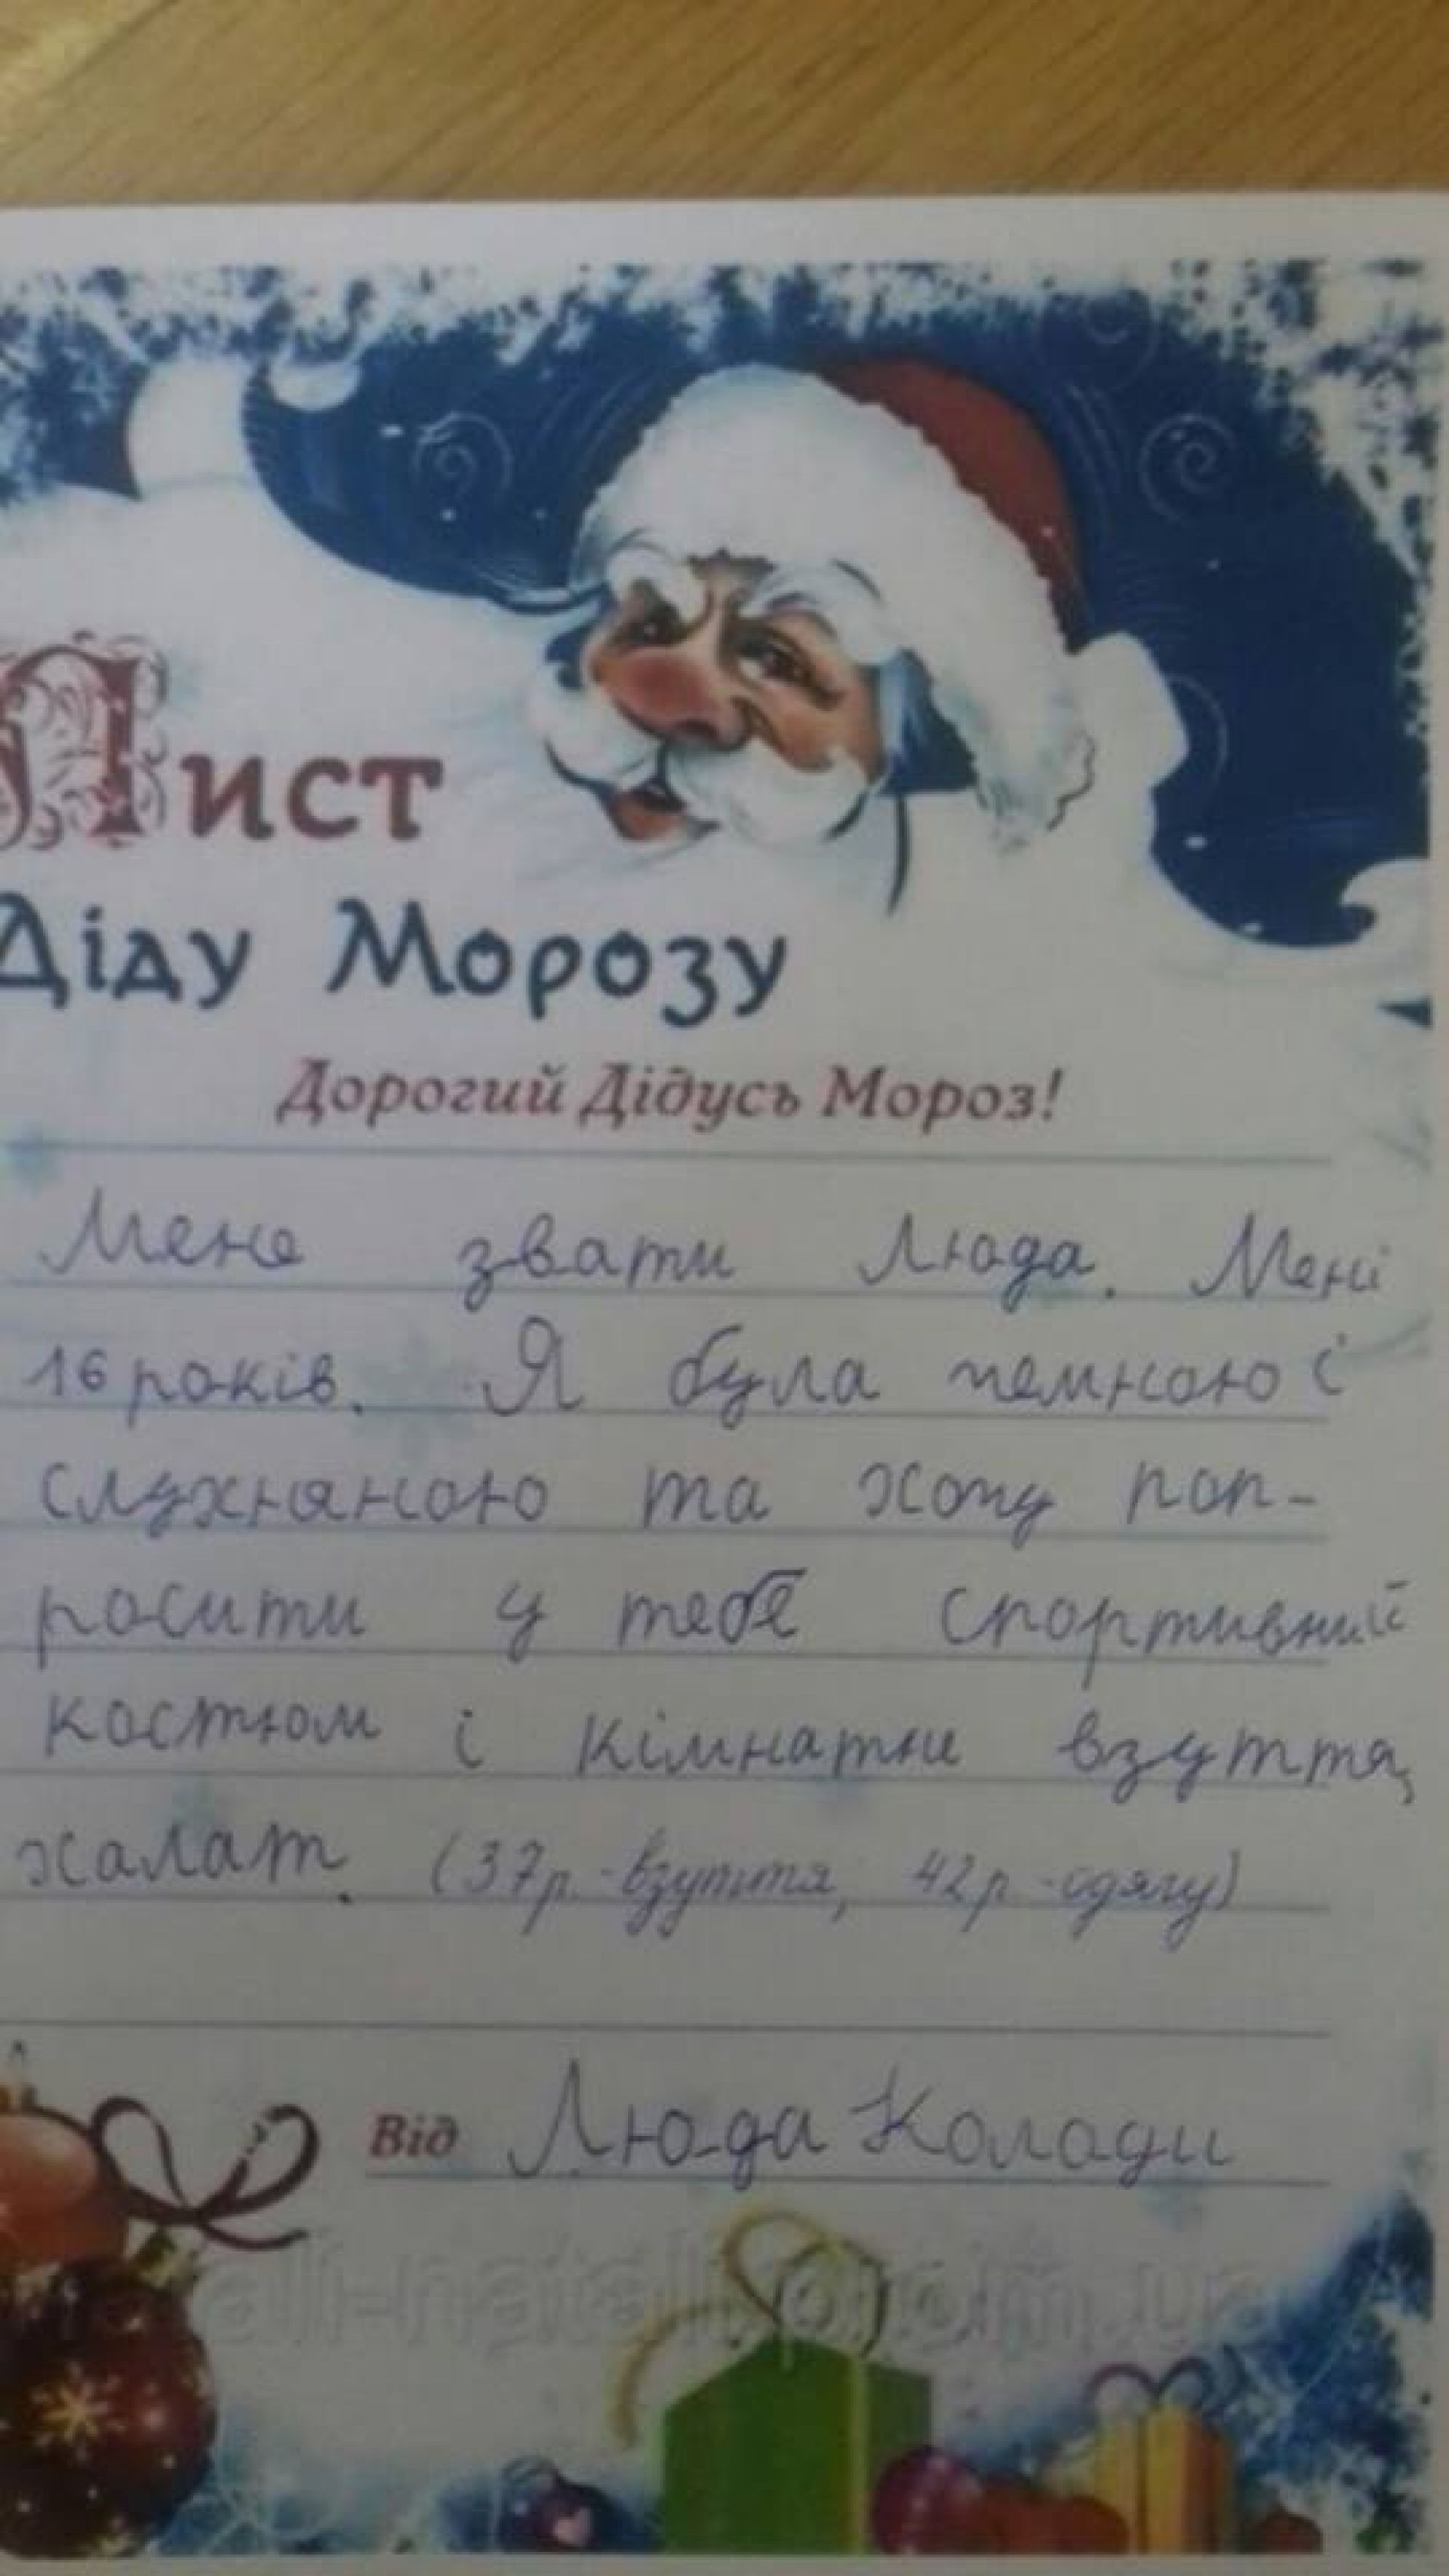 Лист
Діду Морозу
Дорогий Дідусь Мороз!
Мене звати Люда. Мені
16 років. Я була чемною і
слухняною та хочу поп-
росити у тебе спортивний
костюм і кімнатне взуття,
халат. (37р.-взуття, 42р.-одягу)
Від Люда Колади